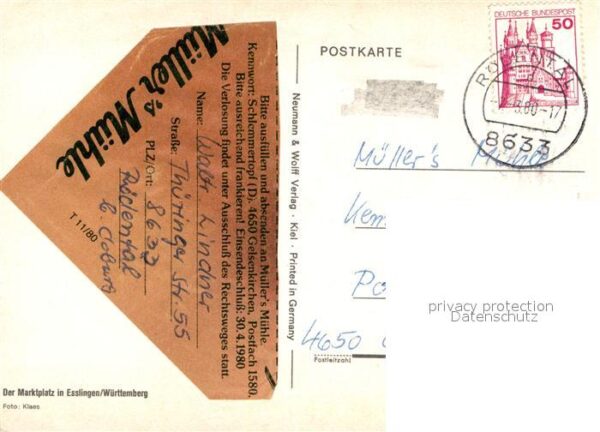 Müller's Mühle
Bitte ausfüllen und absenden an Müller's Mühle.
Kennwort: Schlemmertopf (D), 4650 Gelsenkirchen, Postfach 1580.
Bitte ausreichend frankieren! Einsendeschluß: 30.4.1980
Die Verlosung findet unter Ausschluß des Rechtsweges statt.
Name: Walt. Lindner
Straße: Thüringer Str. 55
PLZ/Ort: 8633
Rödental
b. Coburg
T 11/80
Der Marktplatz in Esslingen/Württemberg
Foto: Klaes
Neumann & Wolff Verlag · Kiel · Printed in Germany
POSTKARTE
DEUTSCHE BUNDESPOST
50
80-17
8633
Müller's Mühle
Ken
Po
4650
Postleitzahl
privacy protection
Datenschutz